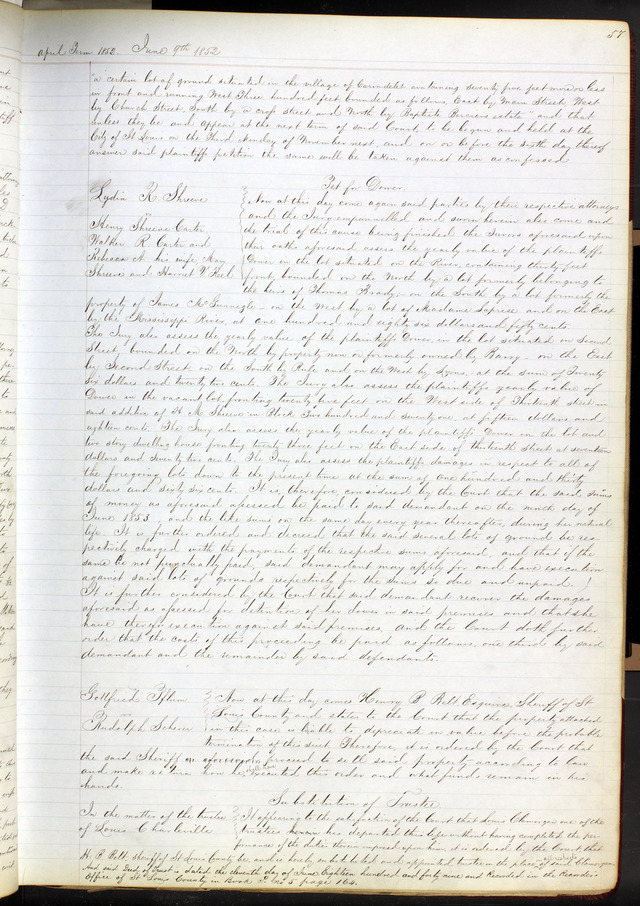 57
april Term 1852. June 9th 1852
a certain lot of ground situated in the village of Carondelet containing seventy five feet more or less
in front and running West Three hundred feet bounded as follows, East by Main Street, West
by Church Street, South by a cross street and North by Baptiste estate and that
unless they be and appear at the next term of said Court, to be begun and held at the
City of St Louis on the Third Monday of November next, and on or before the sixth day thereof
answer said plaintiffs petition the same will be taken against them as confessed
Pet for Dower
Lydia R Shreve
vs
Henry Shreve Carter
Walker R Carter and
Rebecca A his wife, Mary
Shreve and Harriet V
Now at this day come again said parties by their respective attorneys
and the Jury empannelled and sworn herein also come and
the trial of this cause being finished the Jurors aforesaid upon
their oath aforesaid assess the yearly value of the plaintiffs
Dower in the lot situated on the River containing thirty feet
front bounded on the North by a lot formerly belonging to
the heirs of Thomas Brady, on the South by a lot formerly the
property of James on the West by a lot of Madame and on the East
by the Mississippi River, at one hundred and eighty six dollars and fifty cents.
The Jury also assess the yearly value of the plaintiffs Dower in the lot situated on Second
Street bounded on the North by property now or formerly owned by on the East
by Second Street on the South by and on the West by Lyons, at the sum of Twenty
Six dollars and twenty two cents. The Jury also assess the plaintiffs yearly value of
Dower in the vacant lot fronting twenty five feet on the West side of Thirteenth street in
said addition of H M Shreve in Block Two hundred and twenty one, at fifteen dollars and
eighteen cents. The Jury also assess the yearly value of the plaintiffs Dower in the lot and
two story dwelling house fronting twenty three feet on the East side of thirteenth Street at seventeen
dollars and seventy two cents. The Jury also assess the plaintiffs damages in respect to all of
the foregoing lots down to the present time at the sum of one hundred and thirty
dollars and sixty six cents. It is, therefore, considered by the Court that the said sums
of money as aforesaid assessed be paid to said demandant on the ninth day of
June 1853, and the like sums on the same day every year thereafter, during her natural
life. It is further ordered and decreed that the said several lots of ground be res-
pectively charged with the payments of the respective sums aforesaid, and that if the
same be not punctually paid, said demandant may apply for and have execution
against said lots of grounds respectively for the sums so due and unpaid.
It is further considered by the Court that said demandant recover the damages
aforesaid as assessed for detention of her dower in said premises and that she
have therefor execution against said premises and the Court doth further
order that the costs of this proceeding be paid as follows, one third by said
demandant and the remainder by said defendants.
Gottfried Pflum
vs
Rudolph Scheur
Now at this day comes Henry B Belt Esquire Sheriff of St
Louis County and states to the Court that the property attached
in this case is liable to depreciate in value before the probable
termination of the suit Therefore, it is ordered by the Court that
the said Sheriff proceed to sell the said property according to law
and make return how he executed this order and what funds remain in his
hands.
Substitution of Trustee
In the matter of the trustee
of Louis Charleville
It appearing to the satisfaction of the Court that Louis one of the
trustees has departed this life without having completed the per-
formance of the duties therein imposed upon him it is ordered by the Court that
H. B Belt sheriff of St Louis County be, and is hereby substituted and appointed trustee in the place of said
And said Deed of Trust is dated the eleventh day of June Eighteen hundred and forty nine and Recorded in the Recorders
Office of St Louis County in Book No 5 page 164.